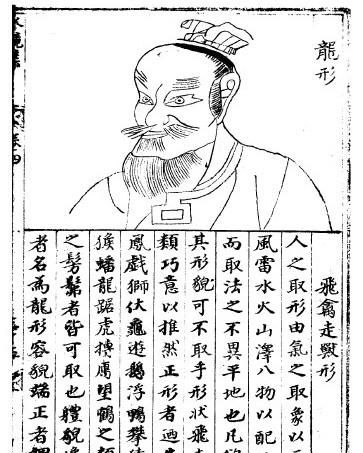 龍形
飛禽走獸形
人之取形由氣之取象以
風雷水火山澤八物以配
而取法之不異平地也凡
其形貌可不取乎形狀飛
類巧意以推然正形者迺
鳳戲獅伏龜遊鵝浮鴨攀
猿蟠龍踞虎摶鷹望鶴之
之髣髴者皆可取也軆貌
者名為龍形容貌端正者
卷四